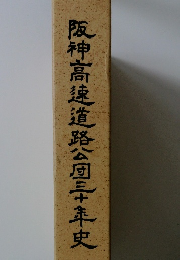 阪神高速道路公団三十年史